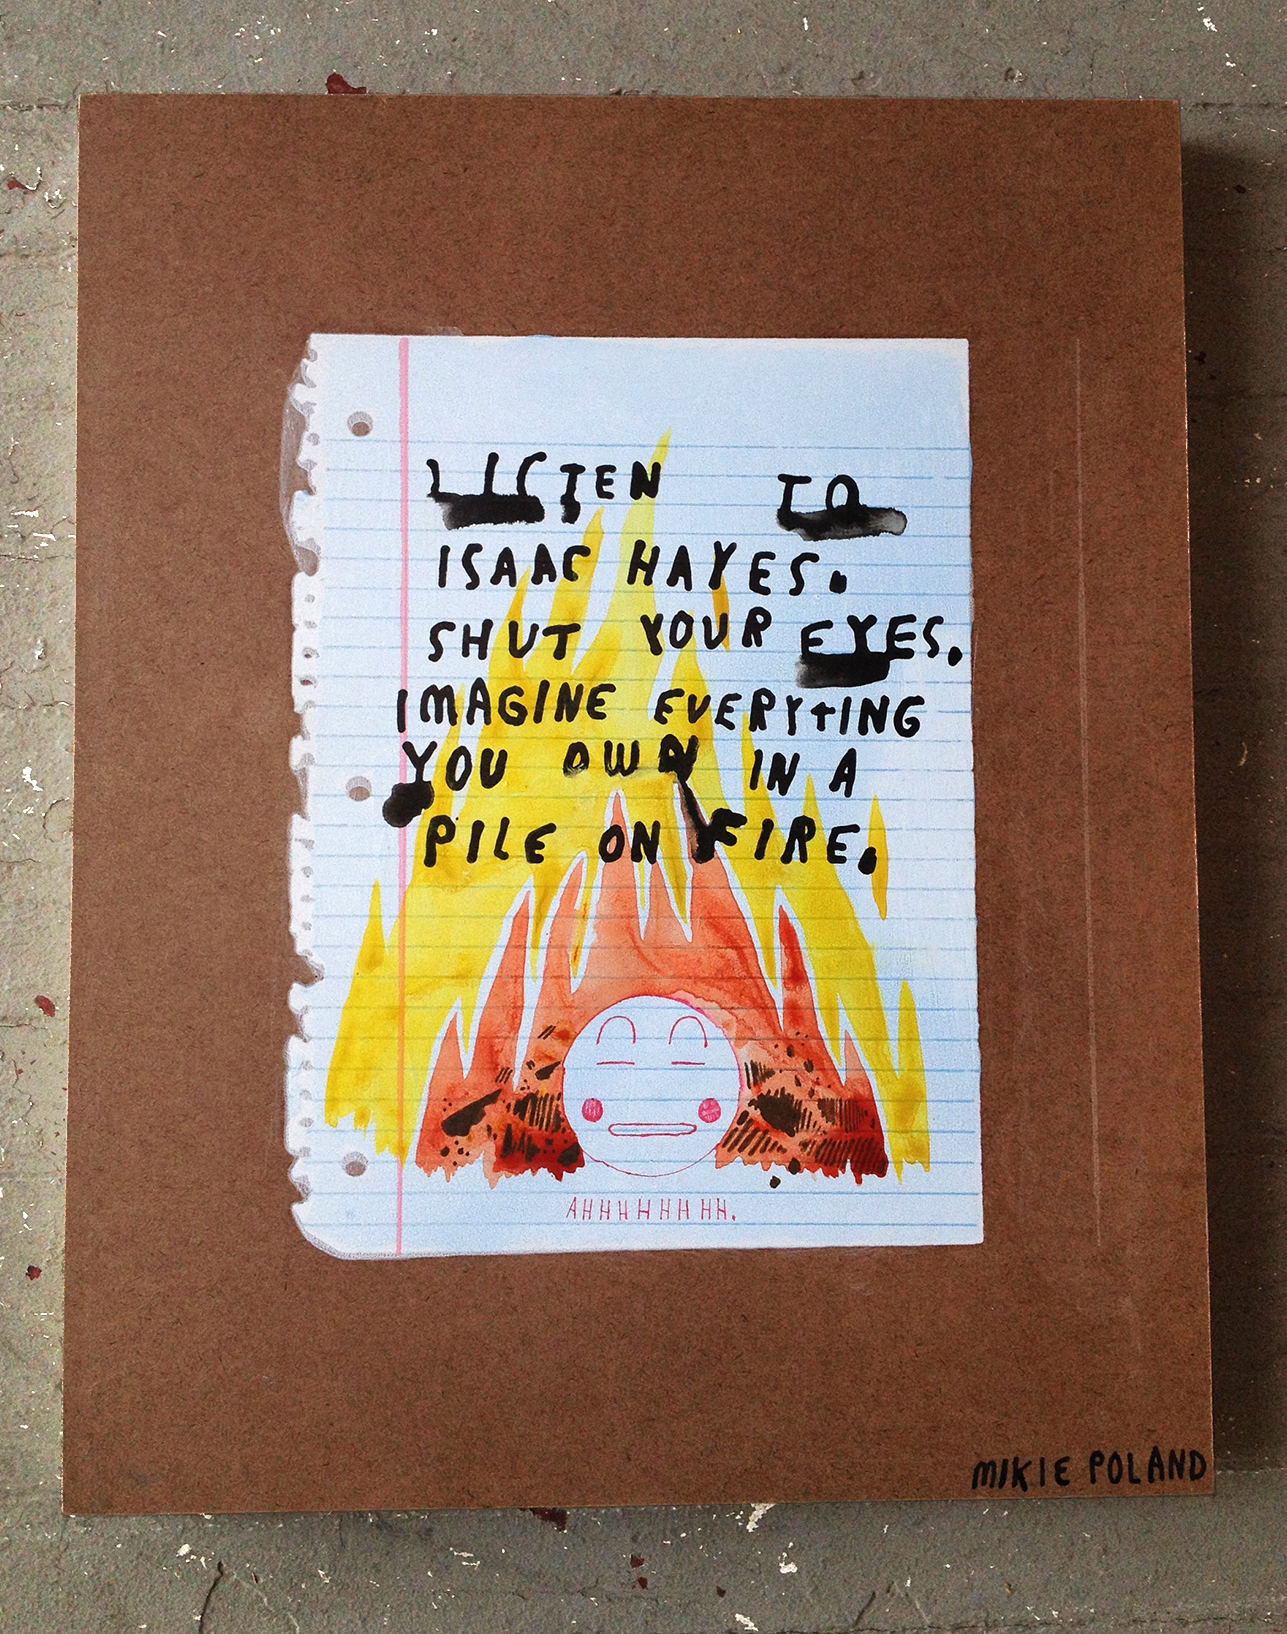 LISTEN TO
ISAAC HAYES.
SHUT YOUR EYES.
IMAGINE EVERYTING
YOU OWN IN A
PILE ON FIRE.
AHHHHHHHH.
MIKIE POLAND